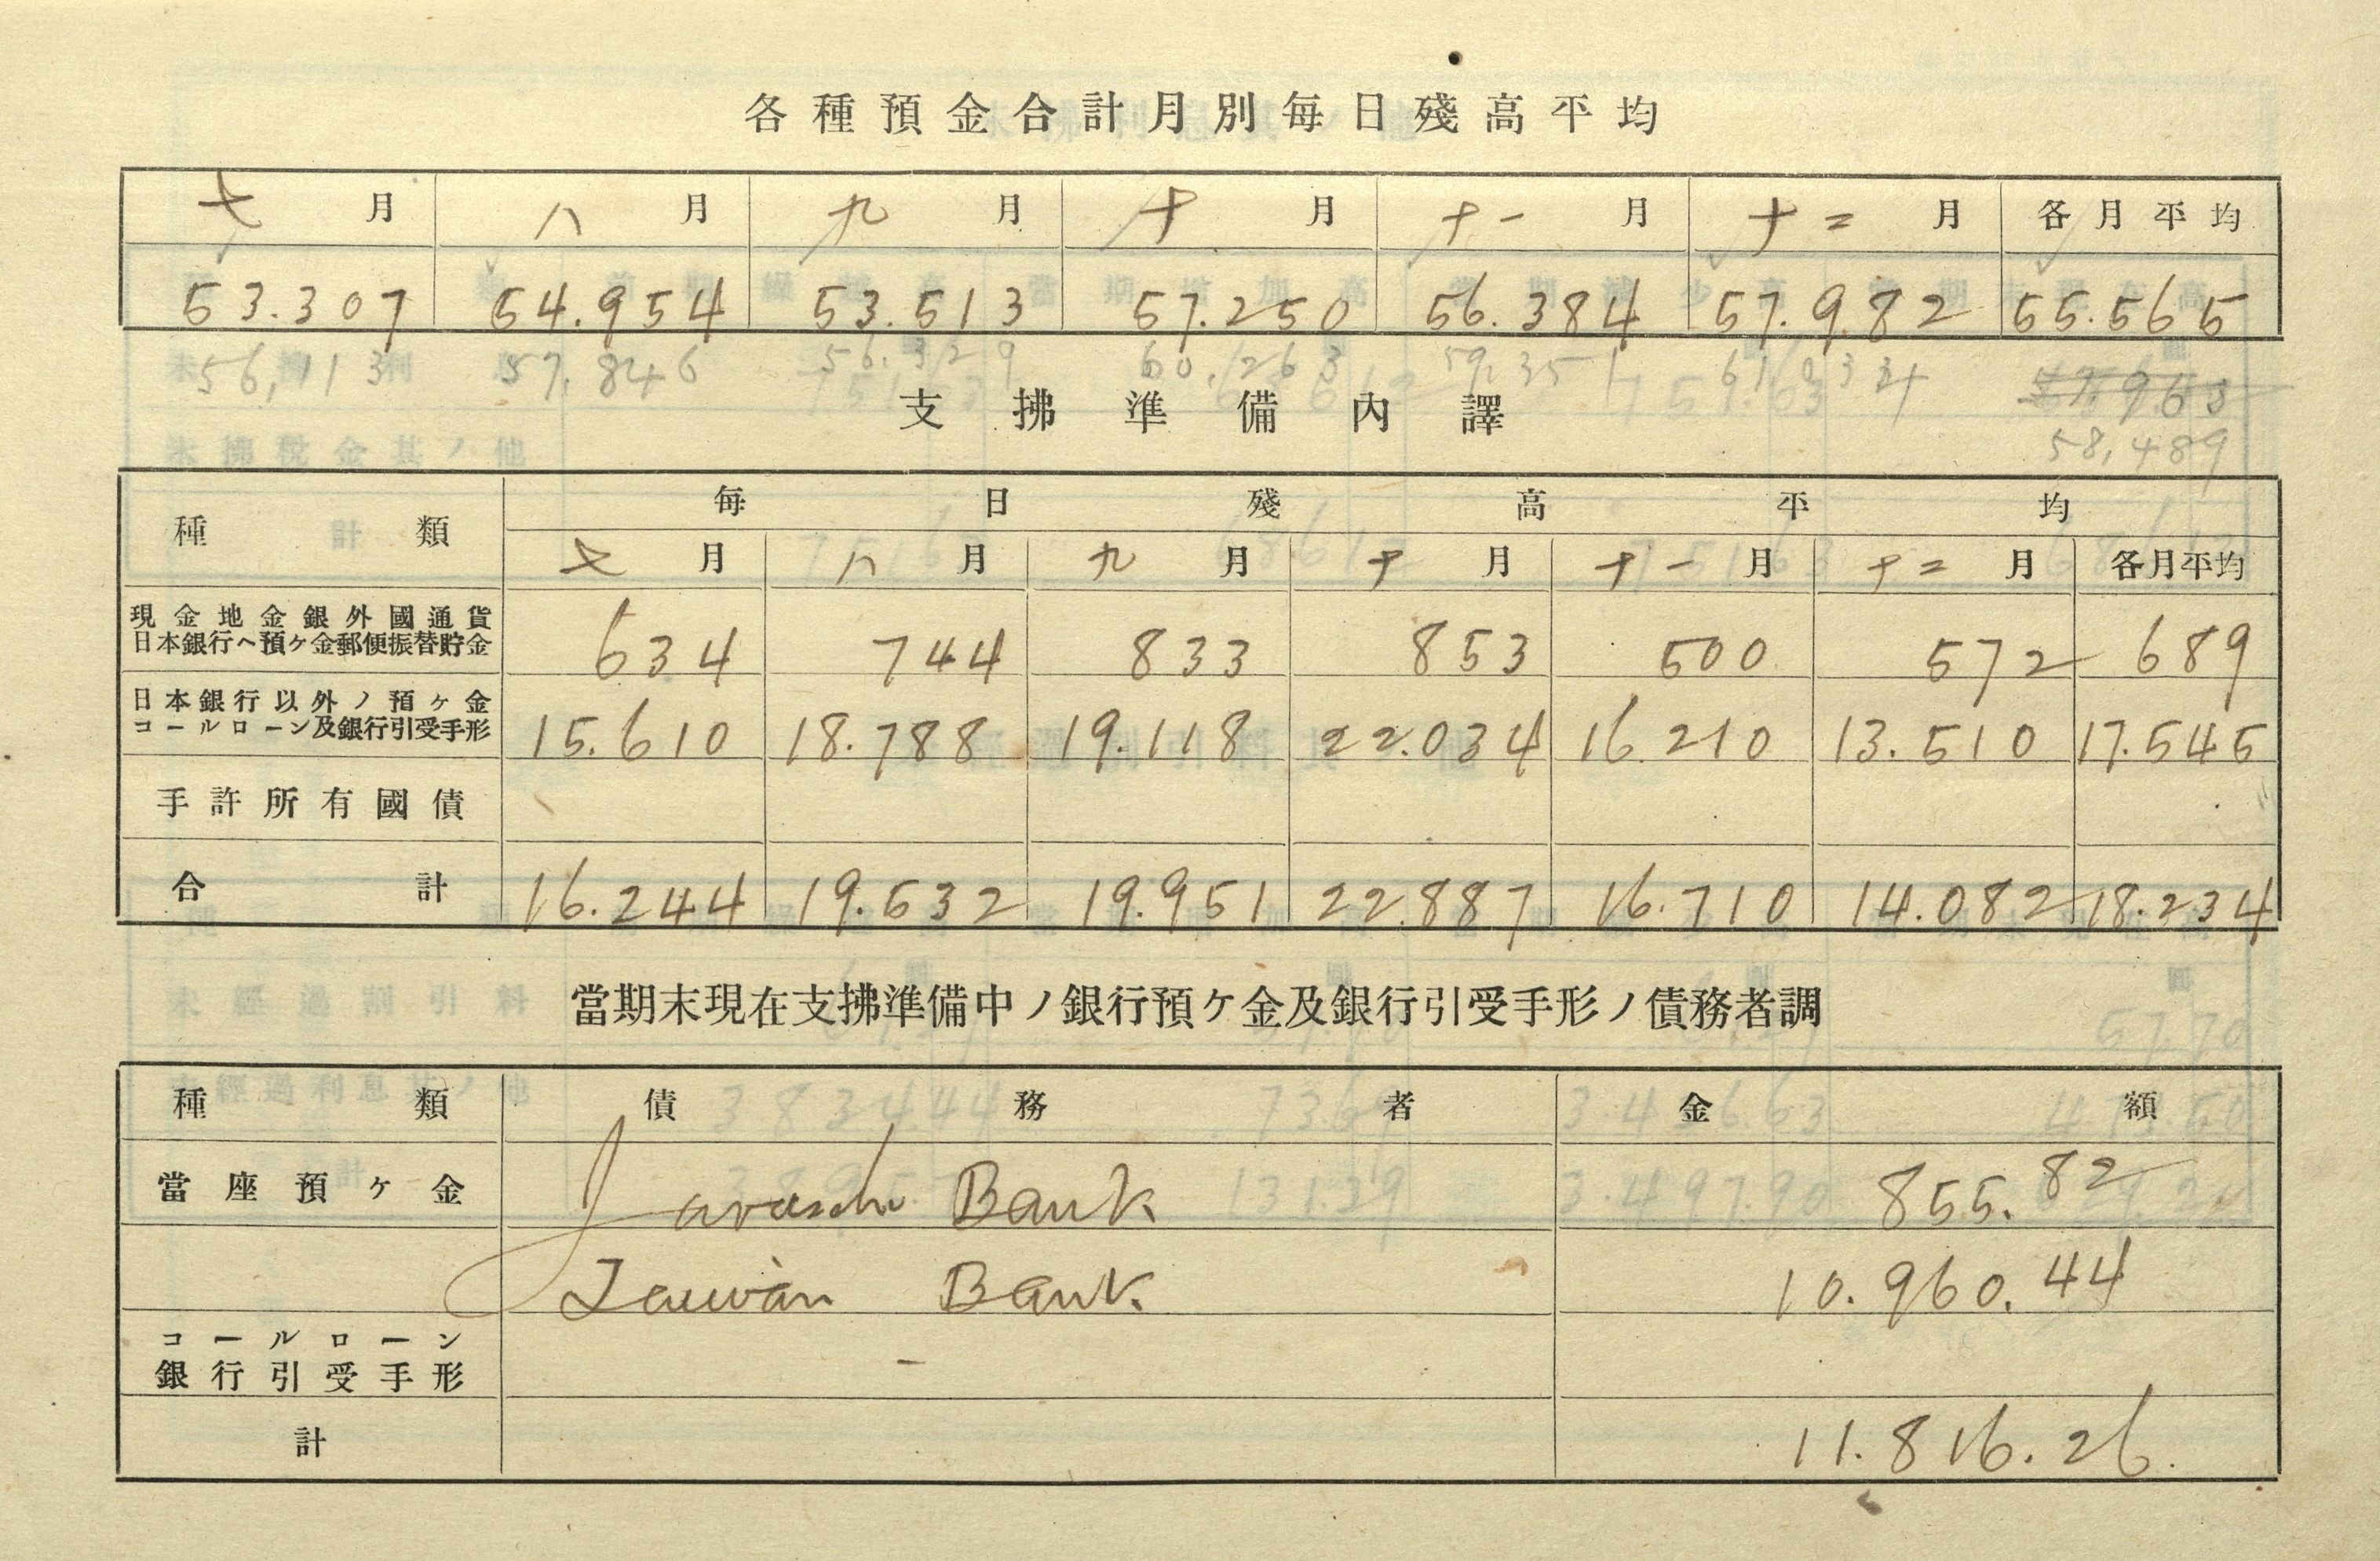 各種預金合計月別每日殘高平均
七月 八月 九月 十月 十一月 十二月 各月平均
53.307 54.954 53.513 57.250 56.384 57.982 55.565
56,113 57.846 56.329 60.263 59.351 61.034 57.963
58,489
支拂準備內譯
種類 每日殘高平均
七月 八月 九月 十月 十一月 十二月 各月平均
現金地金銀外國通貨
日本銀行ヘ預ケ金郵便振替貯金 634 744 833 853 500 572 689
日本銀行以外ノ預ケ金
コールローン及銀行引受手形 15.610 18.788 19.118 22.034 16.210 13.510 17.545
手許所有國債
合計 16.244 19.532 19.951 22.887 16.710 14.082 18.234
當期末現在支拂準備中ノ銀行預ケ金及銀行引受手形ノ債務者調
種類 債務者 金額
當座預ケ金 Bank 855.82
Taiwan Bank 10.960.44
コールローン
銀行引受手形 -
計 11.816.26.